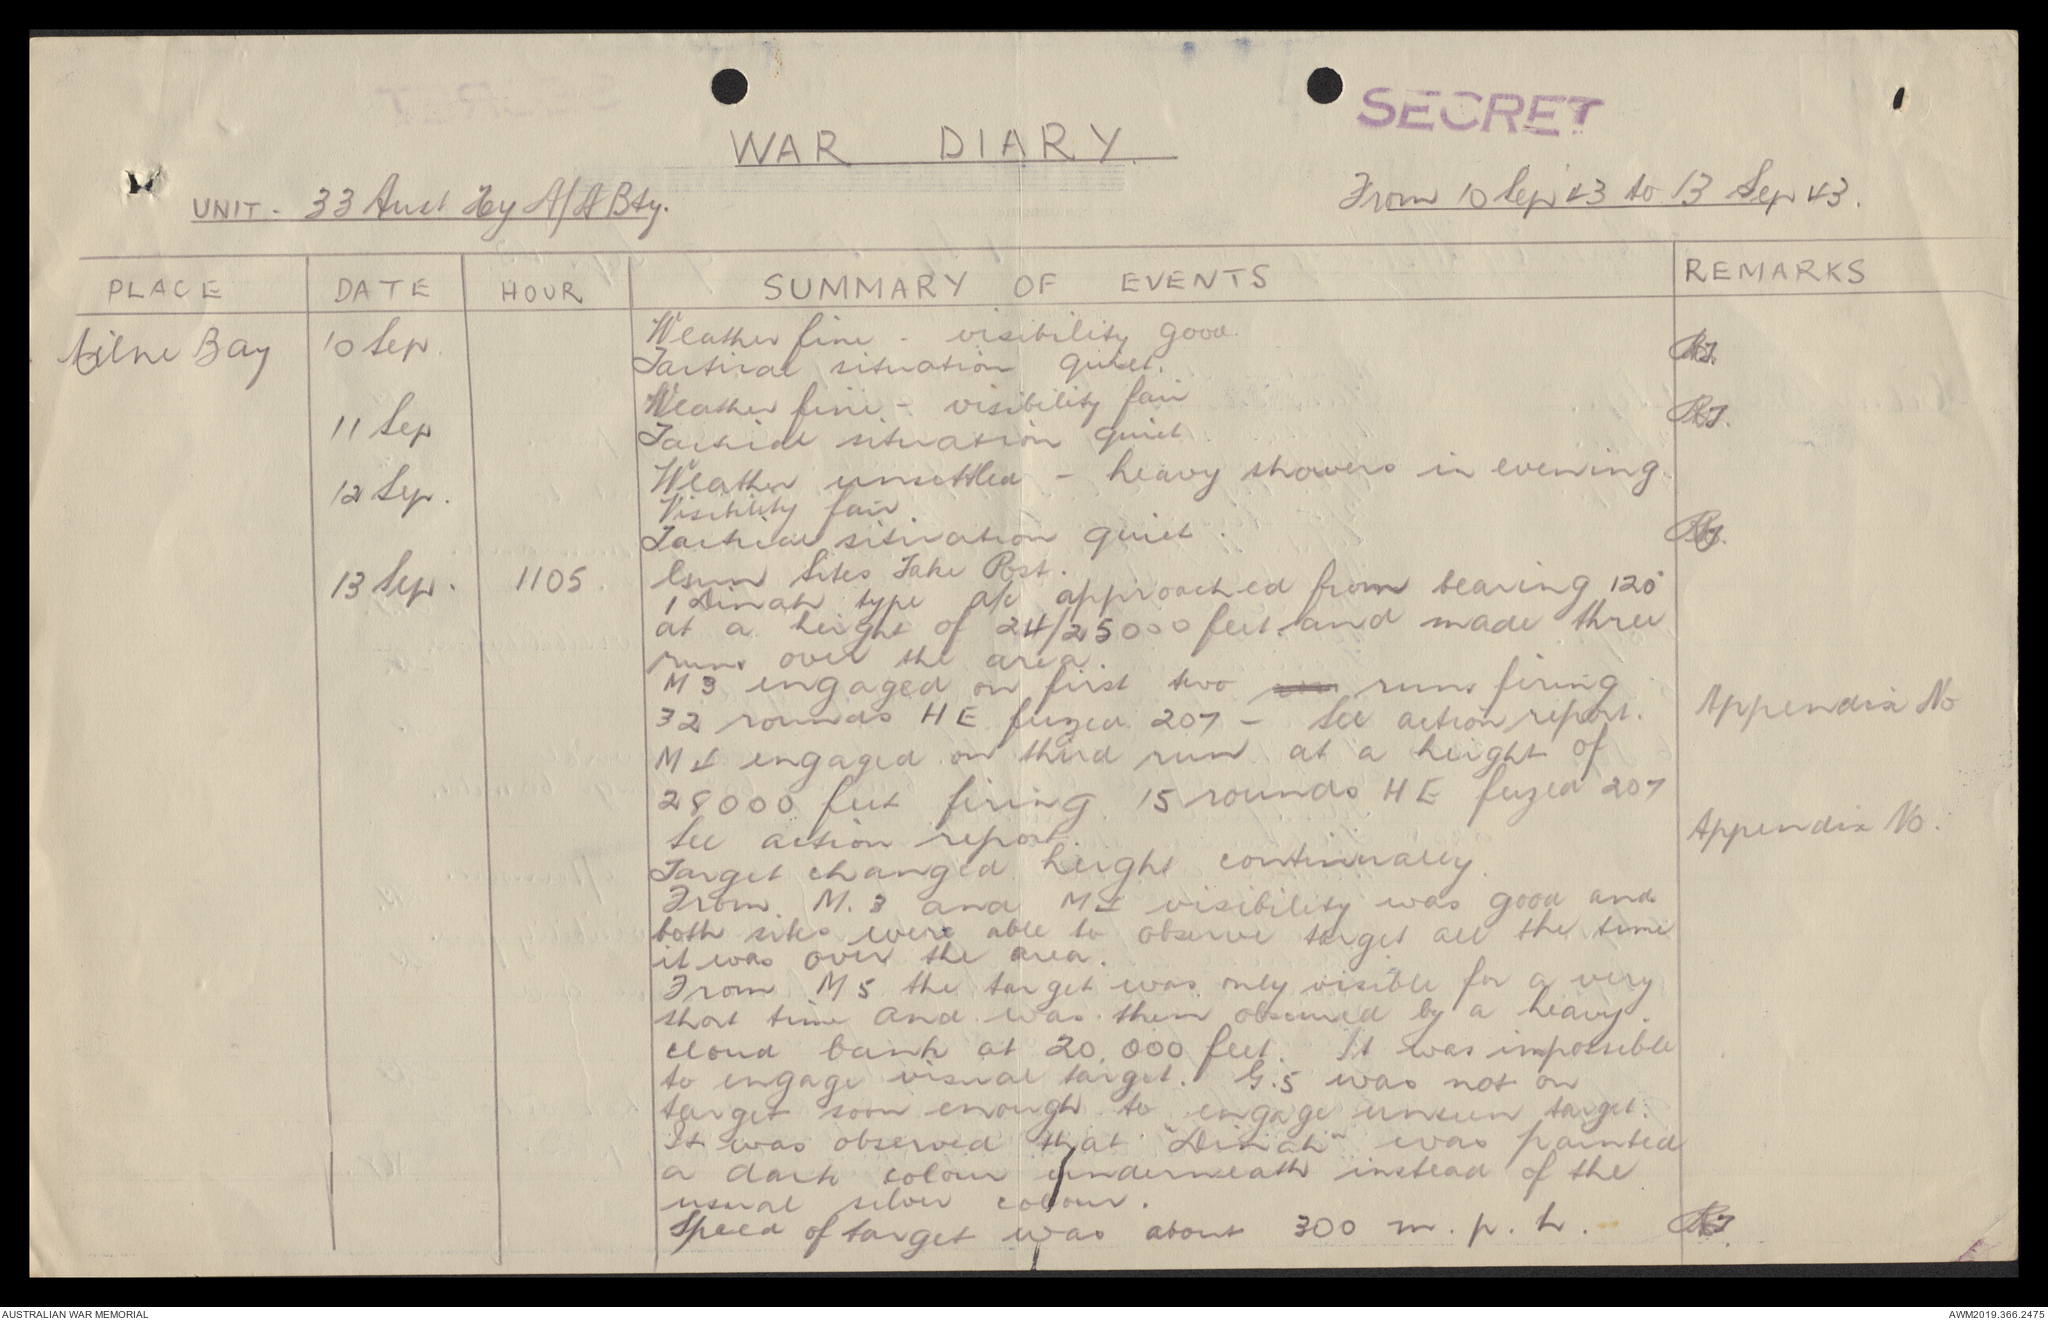 SECRET
WAR DIARY.
UNIT. 33 Aust Hy A/A Bty.
From 10 Sep 43 to 13 Sep 43.
PLACE DATE HOUR SUMMARY OF EVENTS REMARKS
Milne Bay 10 Sep. Weather fine - visibility good.
Tactical situation quiet.
11 Sep Weather fine - visibility fair
Tactical situation quiet
12 Sep. Weather unsettled - heavy showers in evening.
Visibility fair
Tactical situation quiet.
13 Sep. 1105. Gun Sites Take Post.
1 Dinah type a/c approached from bearing 120°
at a height of 24/25000 feet and made three
runs over the area.
M3 engaged on first two runs firing
32 rounds HE fuzed 207 - See action report. Appendix No
M1 engaged on third run at a height of
28000 feet firing 15 rounds HE fuzed 207
See action report. Appendix No.
Target changed height continually.
From M.3 and M1 visibility was good and
both sites were able to observe target all the time
it was over the area.
From M5 the target was only visible for a very
short time and was then obscured by a heavy
cloud bank at 20,000 feet. It was impossible
to engage visual target. G.5 was not on
target soon enough to engage unseen target.
It was observed that "Dinah" was painted
a dark colour underneath instead of the
usual silver colour.
Speed of target was about 300 m.p.h.
AUSTRALIAN WAR MEMORIAL
AWM2019.366.2475